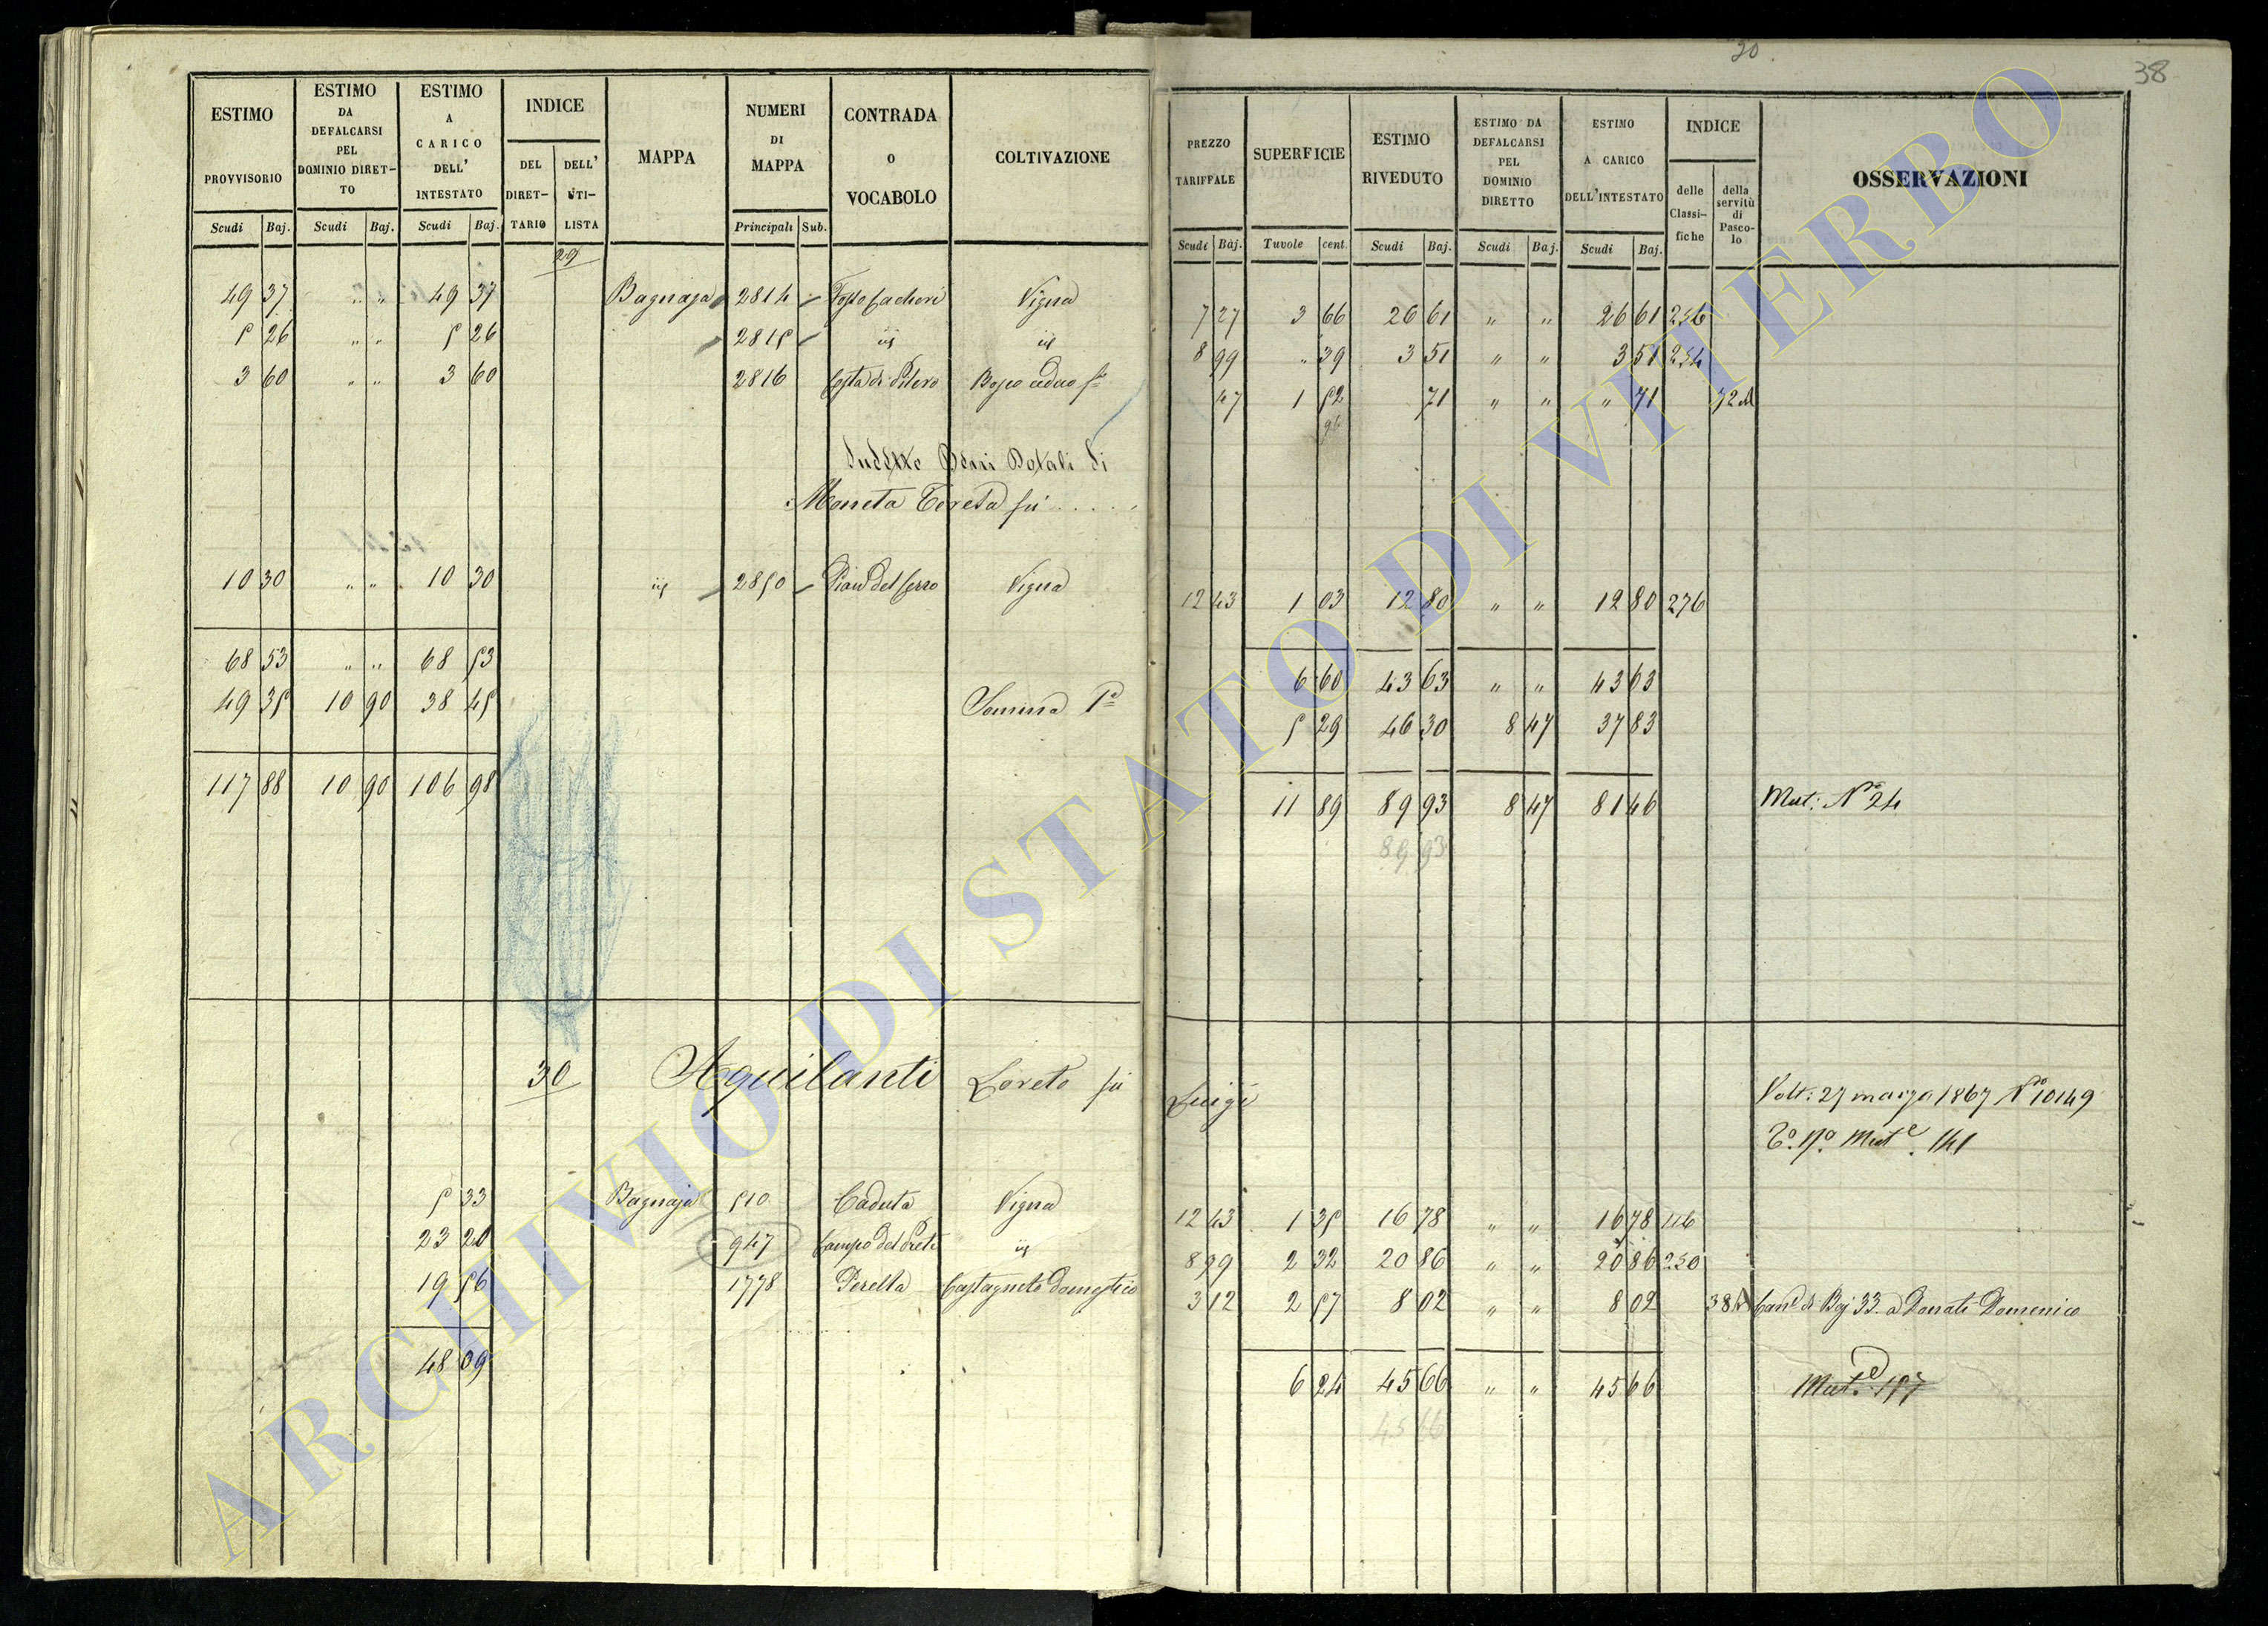 20
38
ESTIMO PROVVISORIO
ESTIMO DA DEFALCARSI PEL DOMINIO DIRET-TO
ESTIMO A CARICO DELL' INTESTATO
INDICE
DEL DIRET-TARIO
DELL' UTI-LISTA
MAPPA
NUMERI DI MAPPA
CONTRADA O VOCABOLO
COLTIVAZIONE
Scudi Baj. Scudi Baj. Scudi Baj. Principali Sub.
PREZZO TARIFFALE
SUPERFICIE
ESTIMO RIVEDUTO
ESTIMO DA DEFALCARSI PEL DOMINIO DIRETTO
ESTIMO A CARICO DELL'INTESTATO
INDICE
delle Classi-fiche
della servitù di Pasco-lo
OSSERVAZIONI
Scudi Baj. Tavole cent. Scudi Baj. Scudi Baj. Scudi Baj.
29
49 37 " " 49 37 Bagnaja 2814 Vigna 7 27 3 66 26 61 " " 26 61 256
5 26 " " 5 26 2815 id id 8 99 " 39 3 51 " " 3 51 254
3 60 " " 3 60 2816 Costa di Bosco ceduo fe 47 1 52 71 " " " 71
Sudetto Beni Dotali di
Moneta Tereta fu . . . . .
10 30 " " 10 30 id 2850 Piano del Cerro Vigna 12 43 1 03 12 80 " " 12 80 276
68 53 " " 68 53 6 60 43 63 " " 43 63
49 35 10 90 38 45 Somma Pa 5 29 46 30 8 47 37 83
117 88 10 90 106 98 11 89 89 93 8 47 81 46 Mut: No 24
89 93
30 Aquilanti Loreto fu Luigi
Volt: 27 marzo 1867 No 10149
To. 17o Mute. 141
5 33 Bagnaja 510 Caduta Vigna 12 43 1 35 16 78 " " 16 78 116
23 20 947 Campo del Prete id 8 99 2 32 20 86 " " 20 86 250
19 56 1778 Perella Castagneto domestico 3 12 2 57 8 02 " " 8 02 38 Can di Baj 33 a Donati Domenico
48 09 6 24 45 66 " " 45 66 Mute. 157
45 66
ARCHIVIO DI STATO DI VITERBO